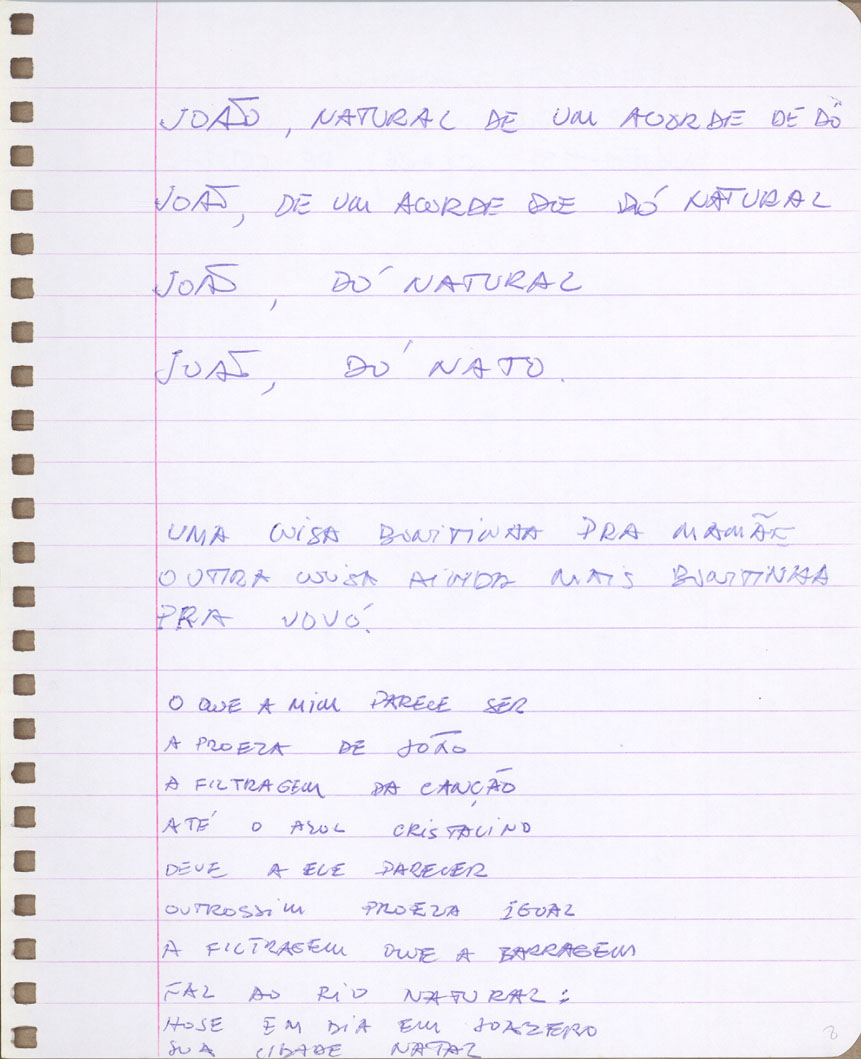 JOÃO, NATURAL DE UM ACORDE DE DÓ
JOÃO, DE UM ACORDE DE DÓ NATURAL
JOÃO, DÓ NATURAL
JOÃO, DÓ NATO.
UMA COISA BONITINHA PRA MAMÃE
OUTRA COISA AINDA MAIS BONITINHA
PRA VOVÓ.
O QUE A MIM PARECE SER
A PROEZA DE JOÃO
A FILTRAGEM DA CANÇÃO
ATÉ O AZUL CRISTALINO
DEVE A ELE PARECER
OUTROSSIM PROEZA IGUAL
A FILTRAGEM QUE A BARRAGEM
FAZ AO RIO NATURAL:
HOJE EM DIA EM JOAZEIRO
SUA CIDADE NATAL